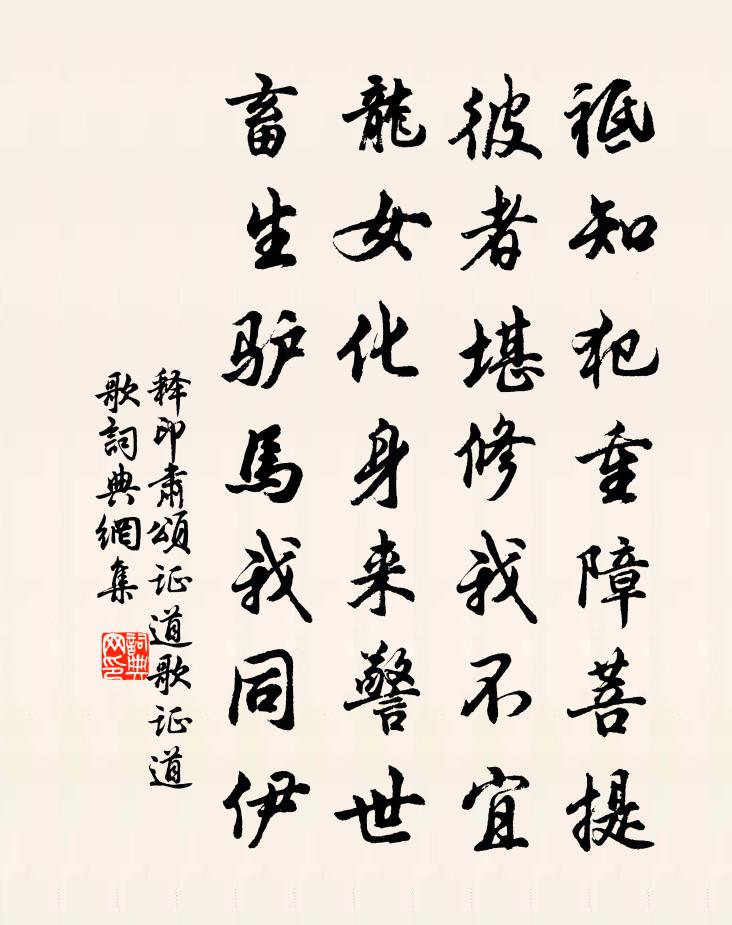 祗知犯重障菩提
彼者堪修我不宜
龍女化身来警世
畜生驴馬我同伊
释印肃頌证道歌证道
歌詞典網集
詞典
网